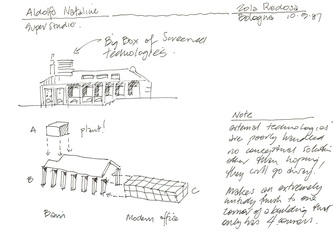 Aldolfo Natalini
Superstudio.
Zola Predosa
Bologna 10.9.87
Big Box of Screened
technologies.
A
plant!
B
C
Basin
Modern office
Note
external technologies
are poorly handled
no conceptual solution
other than hoping
they will go away.
Makes an extremely
untidy finish to one
corner of a building that
only has 4 corners.